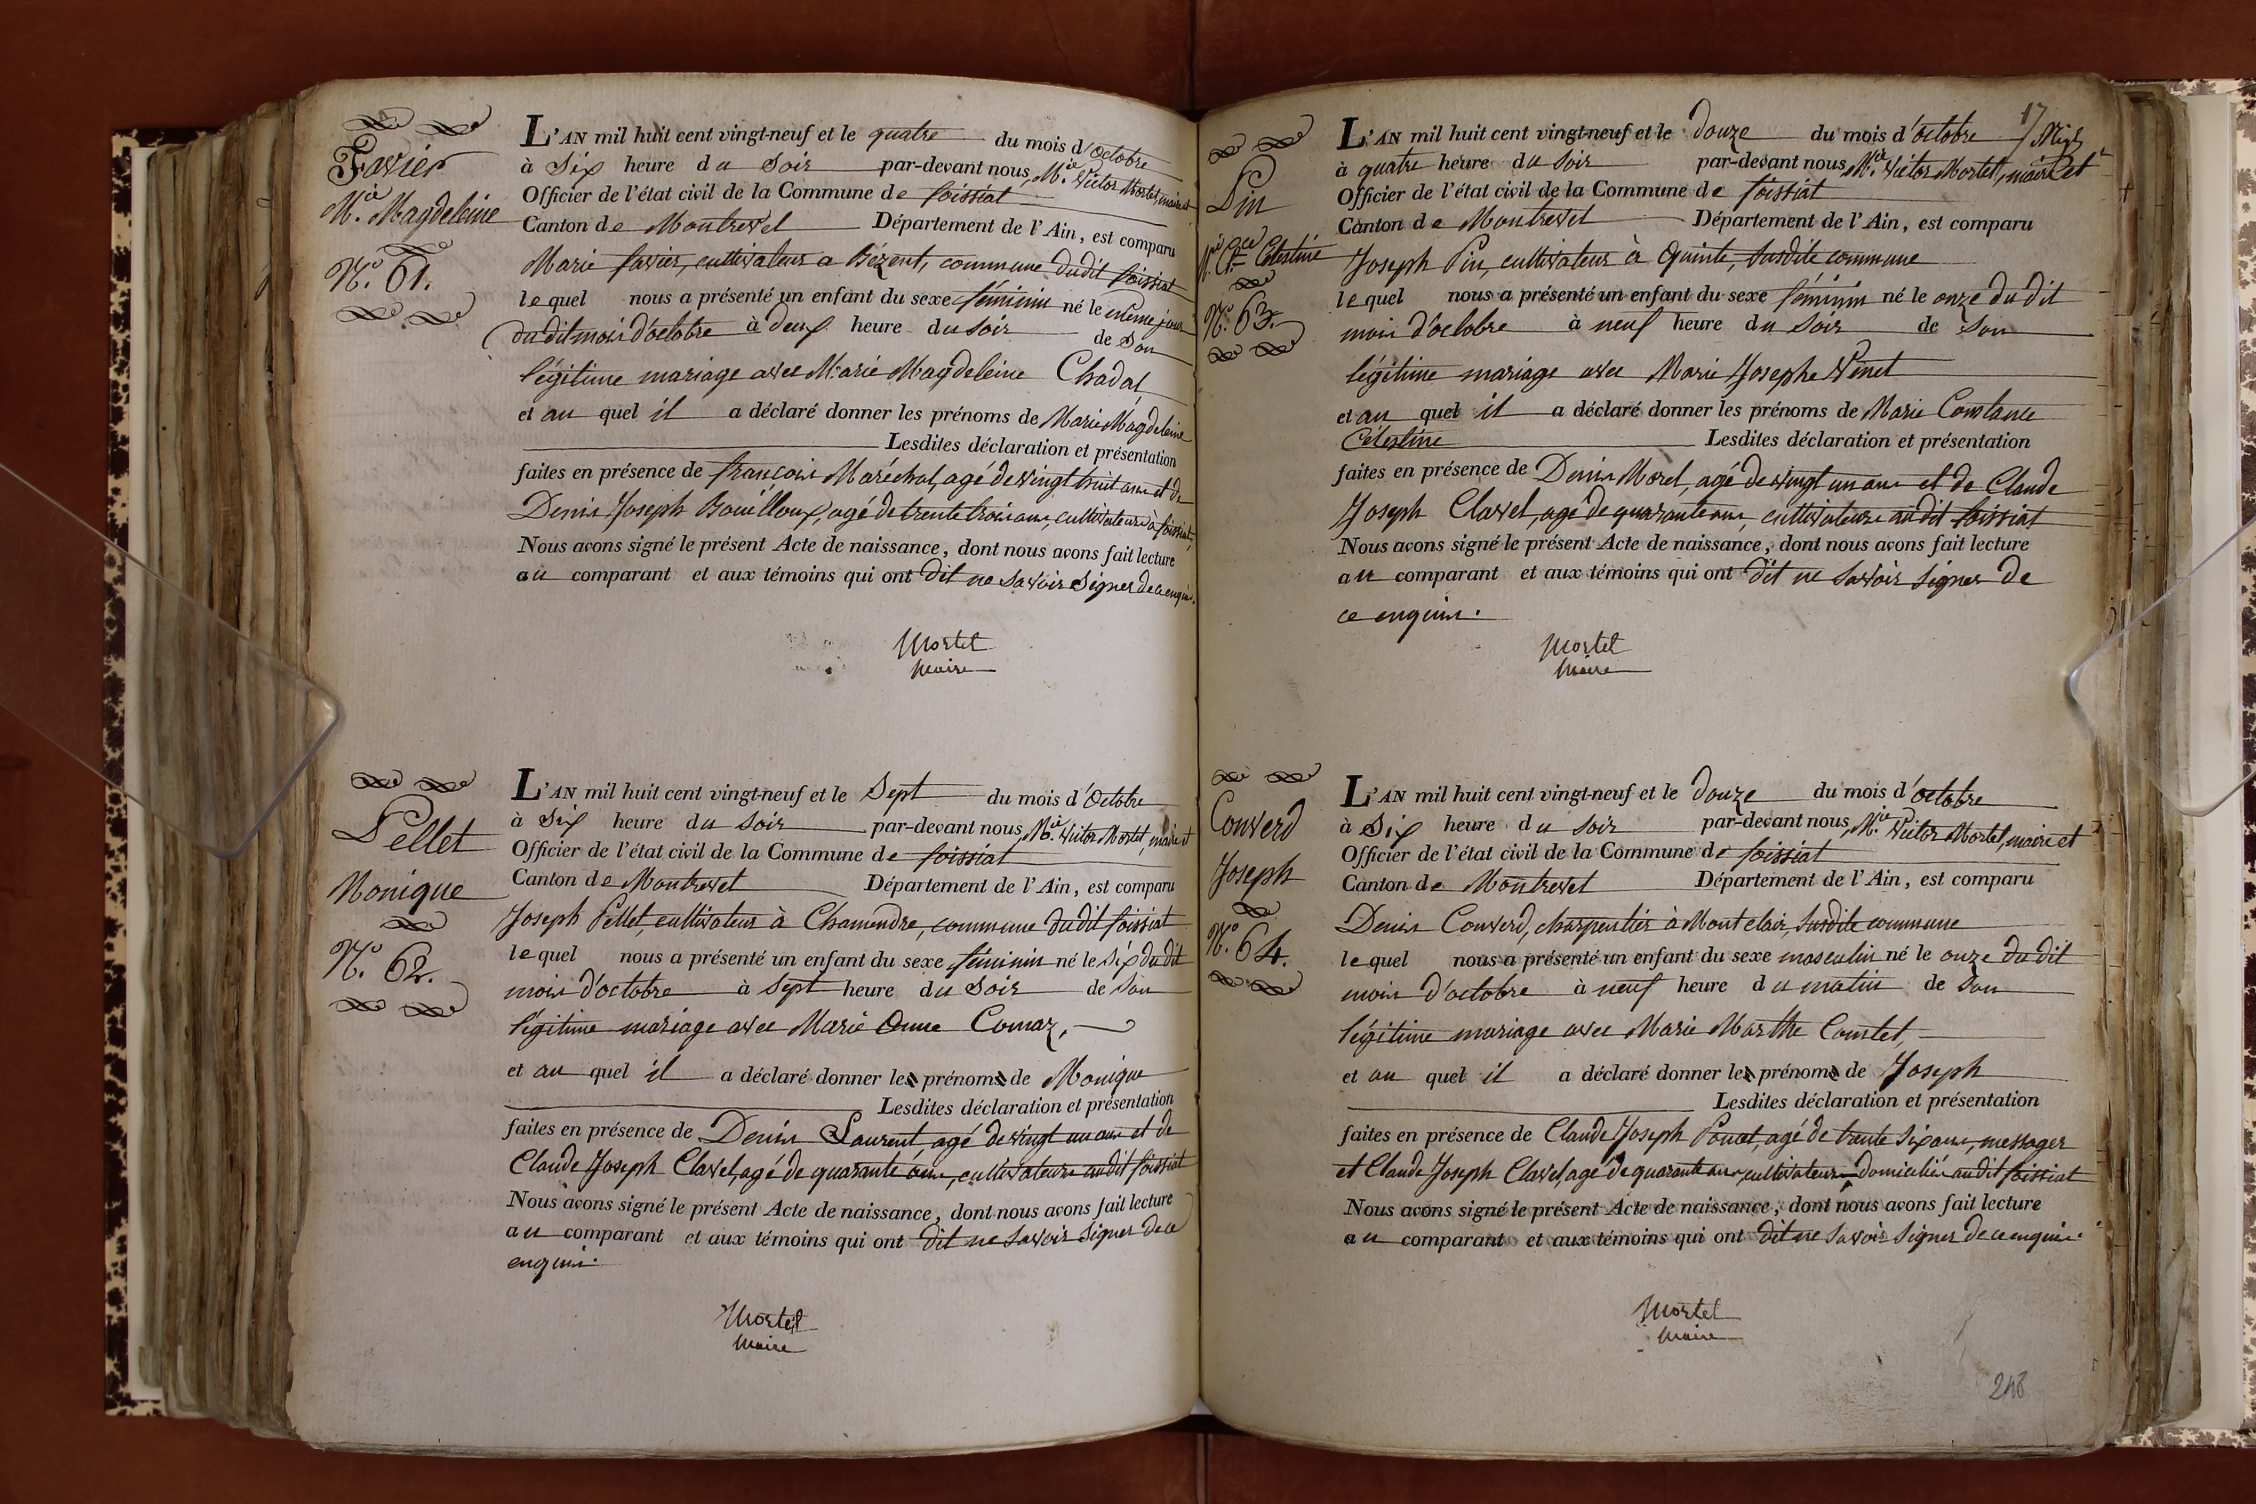 Favier
M.ie Magdeleine
N.o 61.
L'AN mil huit cent vingt-neuf et le quatre du mois d'Octobre
à Six heure du Soir par-devant nous, M.ie Victor Mortel, maire et
Officier de l'état civil de la Commune de foissiat
Canton de Montrevel Département de l'Ain, est comparu
Marie favier, cultivateur a Bézent, commune dudit foissiat
lequel nous a présenté un enfant du sexe féminin né le même jour
du dit mois d'octobre à deux heure du soir de Son
légitime mariage avec Marie Magdeleine Chadal
et au quel il a déclaré donner les prénoms de Marie Magdeleine
Lesdites déclaration et présentation
faites en présence de françois Maréchal, agé de vingt huit ans et de
Denis Joseph Bouilloux, agé de trente trois ans, cultivateurs à foissiat,
Nous avons signé le présent Acte de naissance, dont nous avons fait lecture
au comparant et aux témoins qui ont dit ne Savoir Signer de ce enquis.
Mortel
maire
Pellet
Monique
N.o 62.
L'AN mil huit cent vingt-neuf et le Sept du mois d'Octobre
à Six heure du Soir par-devant nous, M.ie Victor Mortel, maire et
Officier de l'état civil de la Commune de foissiat
Canton de Montrevel Département de l'Ain, est comparu
Joseph Pellet, cultivateur à Chamendre, commune dudit foissiat
lequel nous a présenté un enfant du sexe féminin né le Six du dit
mois d'octobre à Sept heure du Soir de Son
légitime mariage avec Marie Anne Comaz,
et au quel il a déclaré donner les prénoms de Monique
Lesdites déclaration et présentation
faites en présence de Denis Laurent, agé de vingt un ans et de
Claude Joseph Clavel, agé de quarante ans, cultivateurs audit foissiat
Nous avons signé le présent Acte de naissance, dont nous avons fait lecture
au comparant et aux témoins qui ont dit ne Savoir Signer de ce
enquis.
Mortel
maire
17
Pin
M.ie C.ce Célestine
N.o 63.
L'AN mil huit cent vingt-neuf et le Douze du mois d'octobre
à quatre heure du Soir par-devant nous, M.ie Victor Mortel, maire et
Officier de l'état civil de la Commune de foissiat
Canton de Montrevel Département de l'Ain, est comparu
Joseph Pin, cultivateur à Quinte, Susdite commune
lequel nous a présenté un enfant du sexe féminin né le onze du dit
mois d'octobre à neuf heure du Soir de Son
légitime mariage avec Marie Josephe Venet
et au quel il a déclaré donner les prénoms de Marie Constance
Célestine Lesdites déclaration et présentation
faites en présence de Denis Morel, agé de vingt un ans et de Claude
Joseph Clavel, agé de quarante ans, cultivateurs audit foissiat
Nous avons signé le présent Acte de naissance, dont nous avons fait lecture
au comparant et aux témoins qui ont dit ne Savoir Signer De
ce enquis.
Mortel
maire
Converd
Joseph
N.o 64.
L'AN mil huit cent vingt-neuf et le Douze du mois d'octobre
à Six heure du Soir par-devant nous, M.ie Victor Mortel, maire et
Officier de l'état civil de la Commune de foissiat
Canton de Montrevel Département de l'Ain, est comparu
Denis Converd, charpentier à Montclair, Susdite commune
lequel nous a présenté un enfant du sexe masculin né le onze du dit
mois d'octobre à neuf heure du matin de Son
légitime mariage avec Marie Marthe Comtet,
et au quel il a déclaré donner les prénoms de Joseph
Lesdites déclaration et présentation
faites en présence de Claude Joseph Poncet, agé de trente Six ans, messager
et Claude Joseph Clavel, agé de quarante ans, cultivateur, domiciliés audit foissiat
Nous avons signé le présent Acte de naissance, dont nous avons fait lecture
au comparant et aux témoins qui ont dit ne Savoir Signer de ce enquis.
Mortel
maire
248